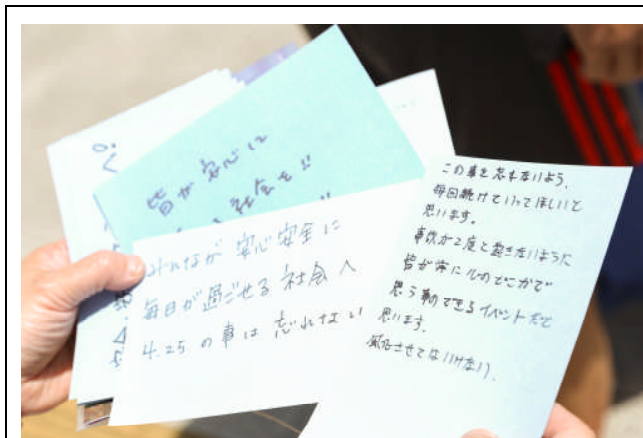 皆が安心に
社会を!!
みんなが安心安全に
毎日が過ごせる社会へ
4.25の事は忘れない
この事を忘れないよう、
毎回続けていってほしいと
思います。
事故が2度と起きないように
皆が常に心のどこかで
思う事のできるイベントだと
思います。
風化させてはいけない。